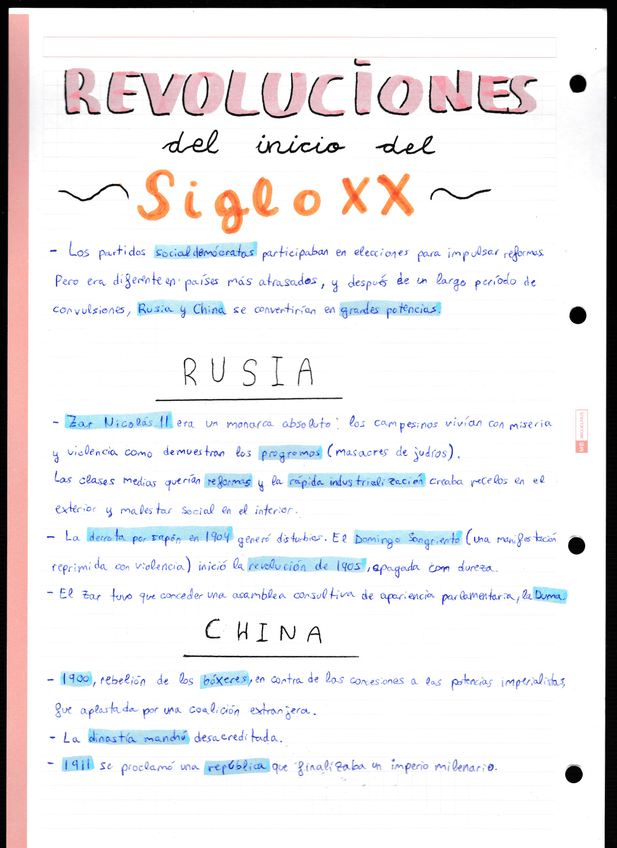 REVOLUCIONES
del inicio del
Siglo XX
- Los partidos socialdemócratas participaban en elecciones para impulsar reformas.
Pero era diferente en países más atrasados, y después de un largo período de
convulsiones, Rusia y China se convertirían en grandes potencias.
RUSIA
- Zar Nicolás II era un monarca absoluto: los campesinos vivían con miseria
y violencia como demuestran los progromos (masacres de judíos).
Las clases medias querían reformas y la rápida industrialización creaba recelos en el
exterior y malestar social en el interior.
- La derrota por Japón en 1904 generó disturbios. El Domingo Sangriento (una manifestación
reprimida con violencia) inició la revolución de 1905, apagada com dureza.
- El zar tuvo que conceder una asamblea consultiva de apariencia parlamentaria, la Duma.
CHINA
- 1900, rebelión de los bóxeres, en contra de las concesiones a las potencias imperialistas,
fue aplastada por una coalición extranjera.
- La dinastía manchú desacreditada.
- 1911 se proclamó una república que finalizaba un imperio milenario.